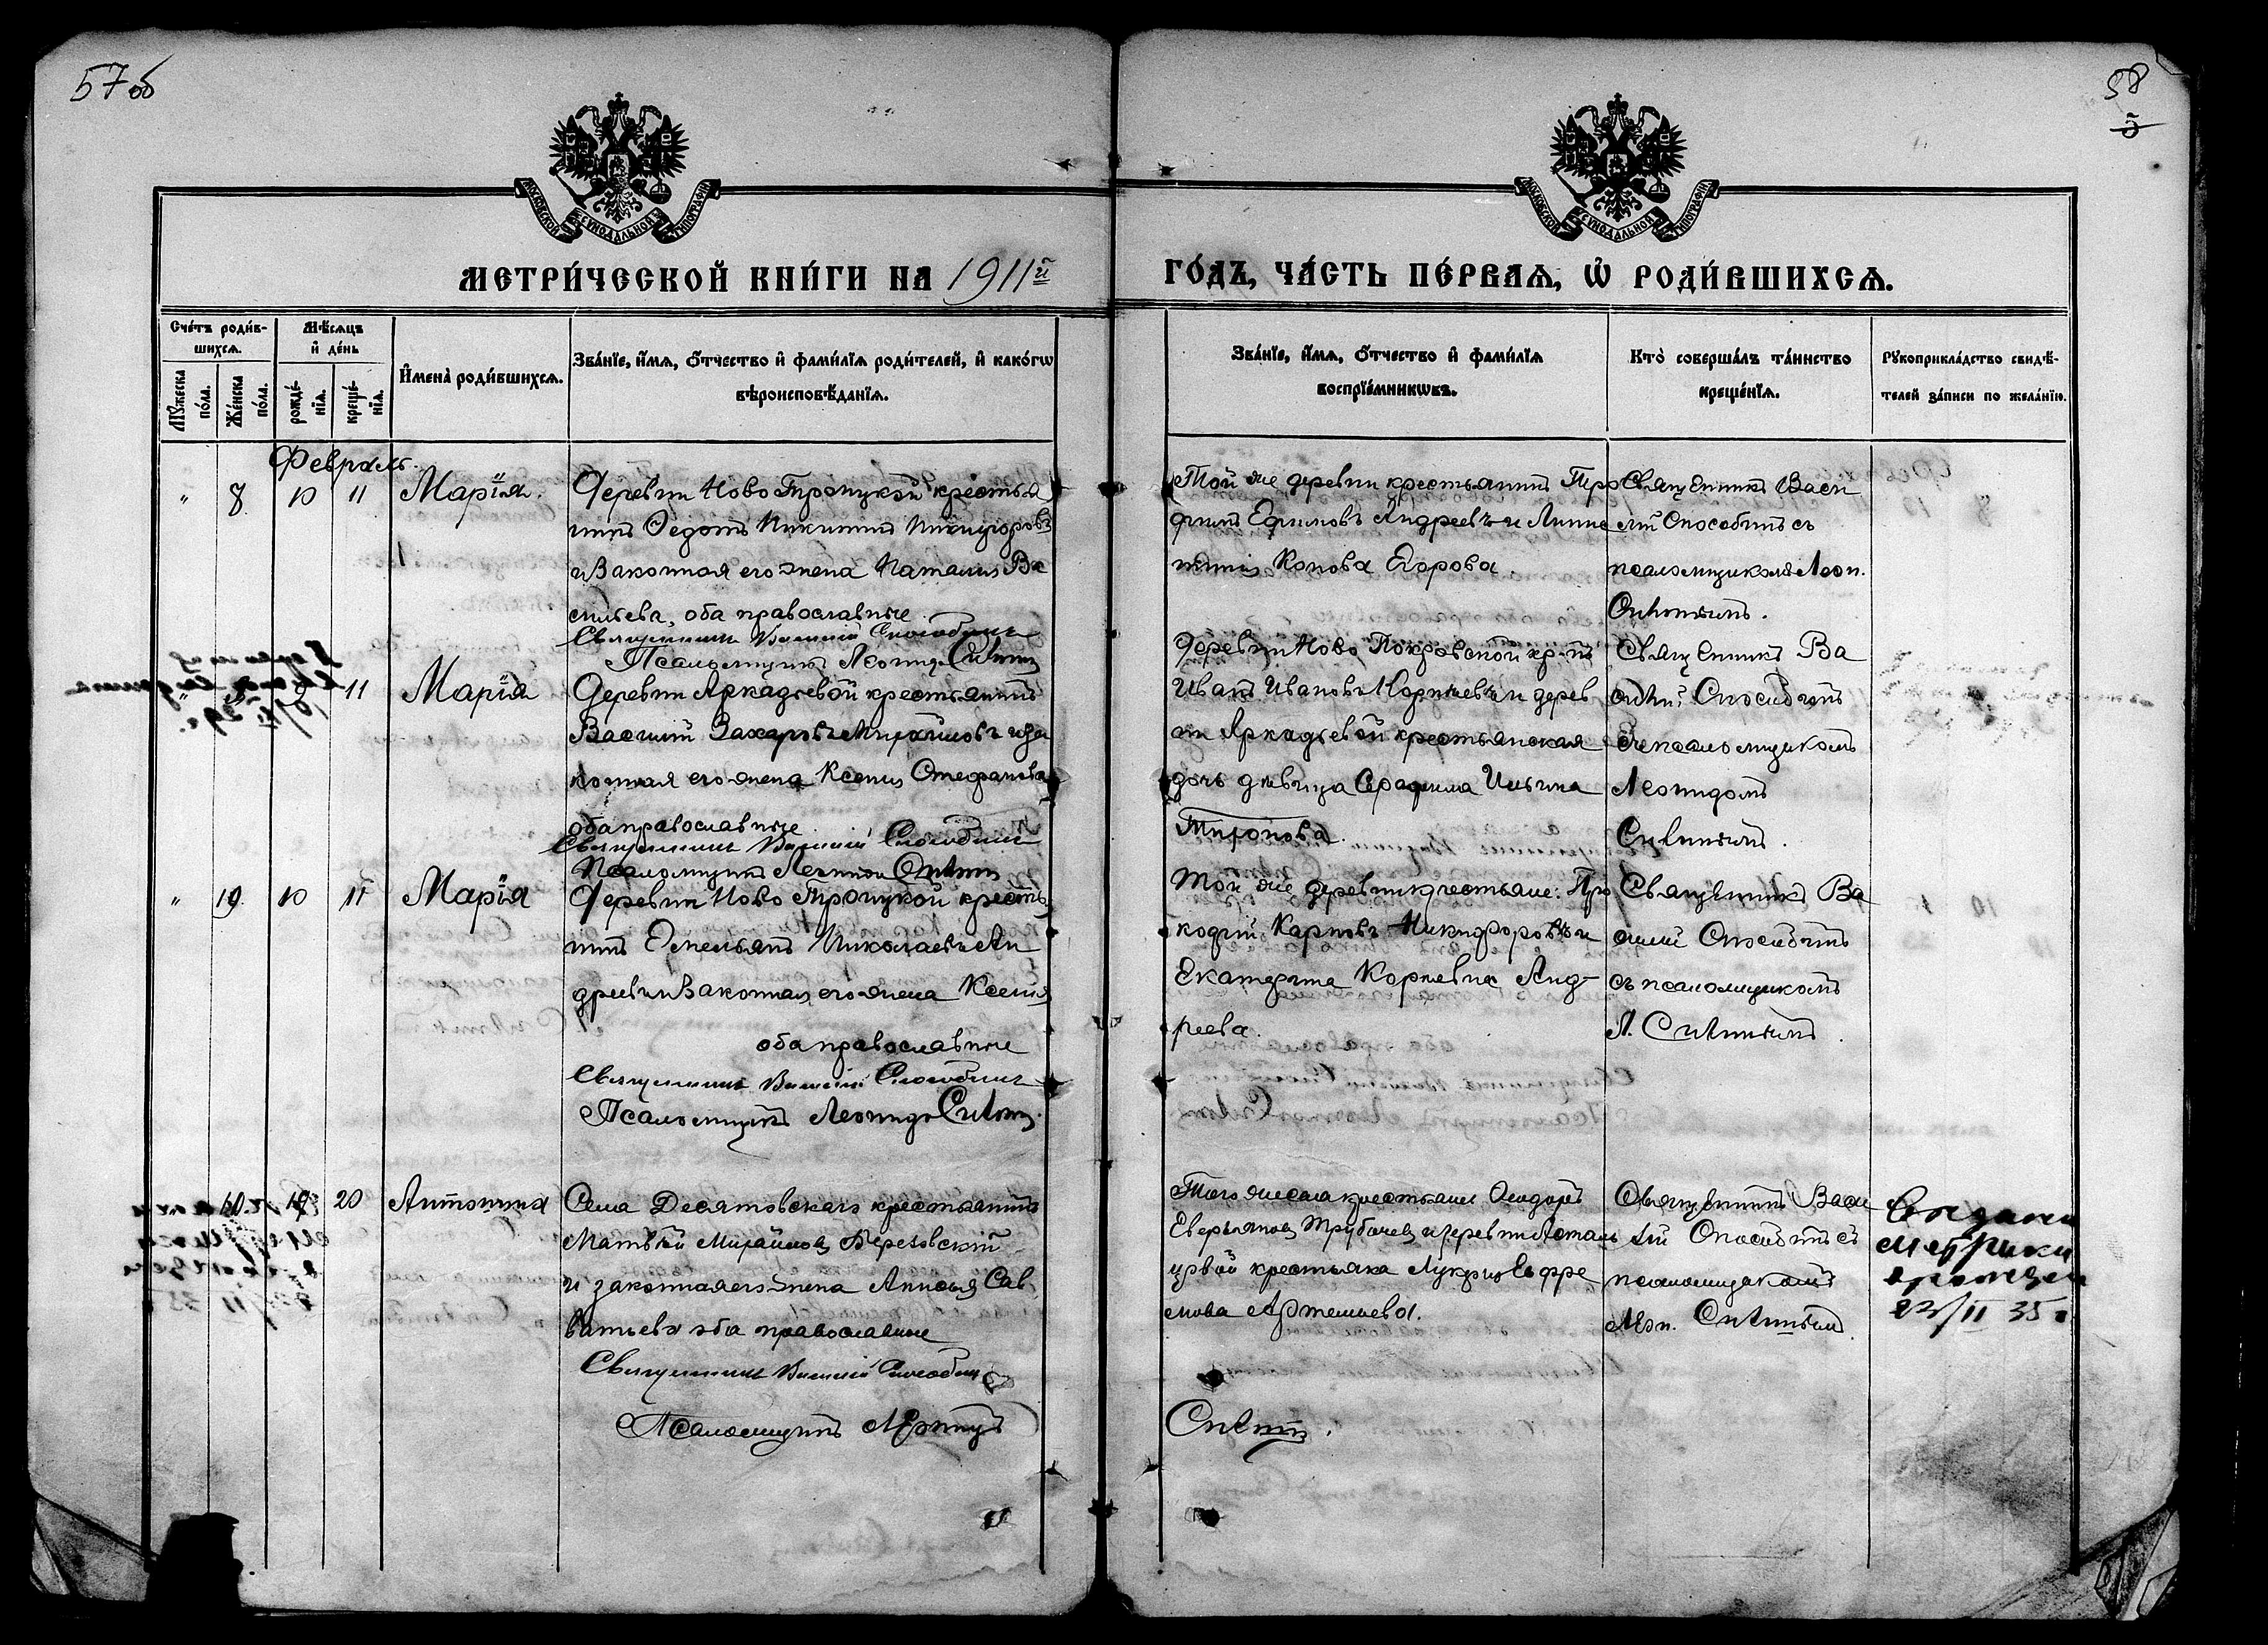 57об
58
5
МОСКОВСКОЙ СѴНОДАЛЬНОЙ ТИПОГРАФІИ
МОСКОВСКОЙ СѴНОДАЛЬНОЙ ТИПОГРАФІИ
МЕТРИ́ЧЕСКОЙ КНИ́ГИ НА 1911й
ГО́ДЪ, ЧА́СТЬ ПЕ́РВАЯ, Ѡ҆ РОДИ́ВШИХСЯ.
Сче́тъ роди́в-
шихся.
Мꙋ́жеска по́ла.
Же́нска по́ла.
Мѣ́сяцъ
и҆ де́нь
рожде́-
нїя.
креще́-
нїя.
И҆мена̀ роди́вшихся.
Зва́нїе, и҆́мя, ѻ҆́тчество и҆ фами́лїя роди́телей, и҆ како́гѡ
вѣроисповѣ́данїя.
Зва́нїе, и҆́мя, ѻ҆́тчество и҆ фами́лїя
воспрїе́мникѡвъ.
Кто̀ соверша́лъ та́инство
креще́нїя.
Рꙋкоприкла́дство свидѣ́-
телей за́писи по жела́нїю.
Февраль.
" 8 10 11 Марія.
Деревни Ново Троицкой крестья
нинъ Федотъ Никитинъ Никифоровъ
и законная его жена Наталия Ва
сильева, оба православные
Священникъ Василій Способинъ
Псаломщикъ Леонидъ
Той же деревни крестьянинъ Тро
фимъ Ефимовъ Андреевъ и
Егорова
Священникъ Васи
лій Способинъ съ
псаломщикомъ Леон.
" 9 11 Марія
Деревни Аркадьевой крестьянинъ
Василій Захаровъ Михайловъ и за
конная его жена Ксения Стефанова
оба православные
Священникъ Василій Способинъ
Псаломщикъ Леонидъ
Деревни Ново Покровской кр-нъ
Иванъ Ивановъ Корнеевъ и дерев
ни Аркадьевой крестьянская
дочь дѣвица Серафима Ильина
Священникъ Ва
силій Способинъ
съ псаломщикомъ
Леонидомъ
" 10 11 Марія
Деревни Ново Троицкой кресть
нинъ Емельянъ Николаевъ Ан
дреевъ и законная его жена Ксения
оба православные
Священникъ Василій Способинъ
Псаломщикъ Леонидъ
Той же деревни крестьяне: Про
кофій Карповъ Никифоровъ и
Екатерина Корнева Анд-
реева.
Священникъ Ва
силій Способинъ
съ псаломщикомъ
Л.
10. 20 Антонина
Села Десятовскаго крестьянинъ
Матвѣй Михайловъ Березовскій
и законная его жена Анисья Сав
ватьева оба православные
Священникъ Василій Способинъ
Псаломщикъ Леонидъ
Того же села крестьянинъ Феодоръ
Аверьяновъ Трубачевъ и деревни
крестьянка Лукерья Ефре
мова Артемьева.
Священникъ Васи
лій Способинъ съ
псаломщикомъ
Леон.
Выдана
метрика
о рожден
23/II 35 г.